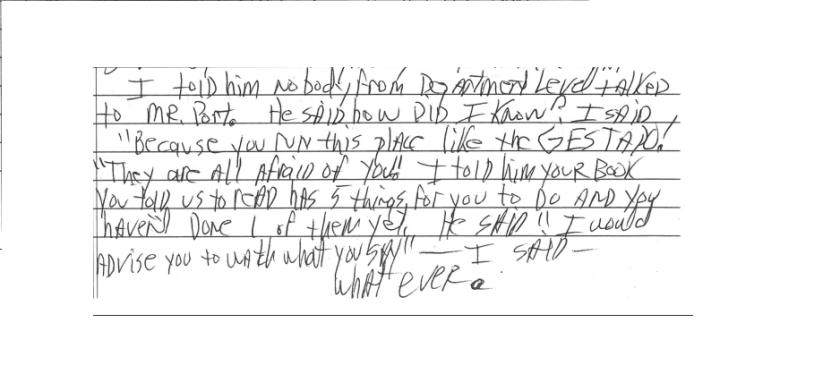 I told him nobody from Department Level talked
to MR. Port. He said how DID I Know? I said,
"Because you RUN this place like the GESTAPO!
"They are All Afraid of You!" I told him YOUR BOOK
You told us to read has 5 things for you to Do AND you
haven't Done 1 of them yet. He SAID "I would
ADvise you to wath what you SAY" — I SAID —
WhAt EVER.